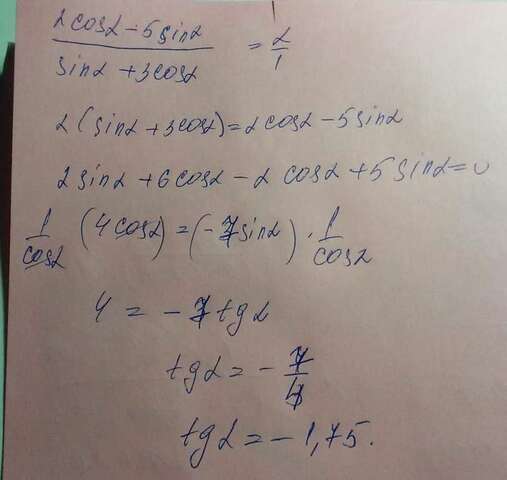 2cosα - 5sinα / sinα + 3cosα = 2/1
2(sinα + 3cosα) = 2cosα - 5sinα
2sinα + 6cosα - 2cosα + 5sinα = 0
1/cosα (4cosα) = (-7sinα) · 1/cosα
4 = -7tgα
tgα = -7/4
tgα = -1,75.